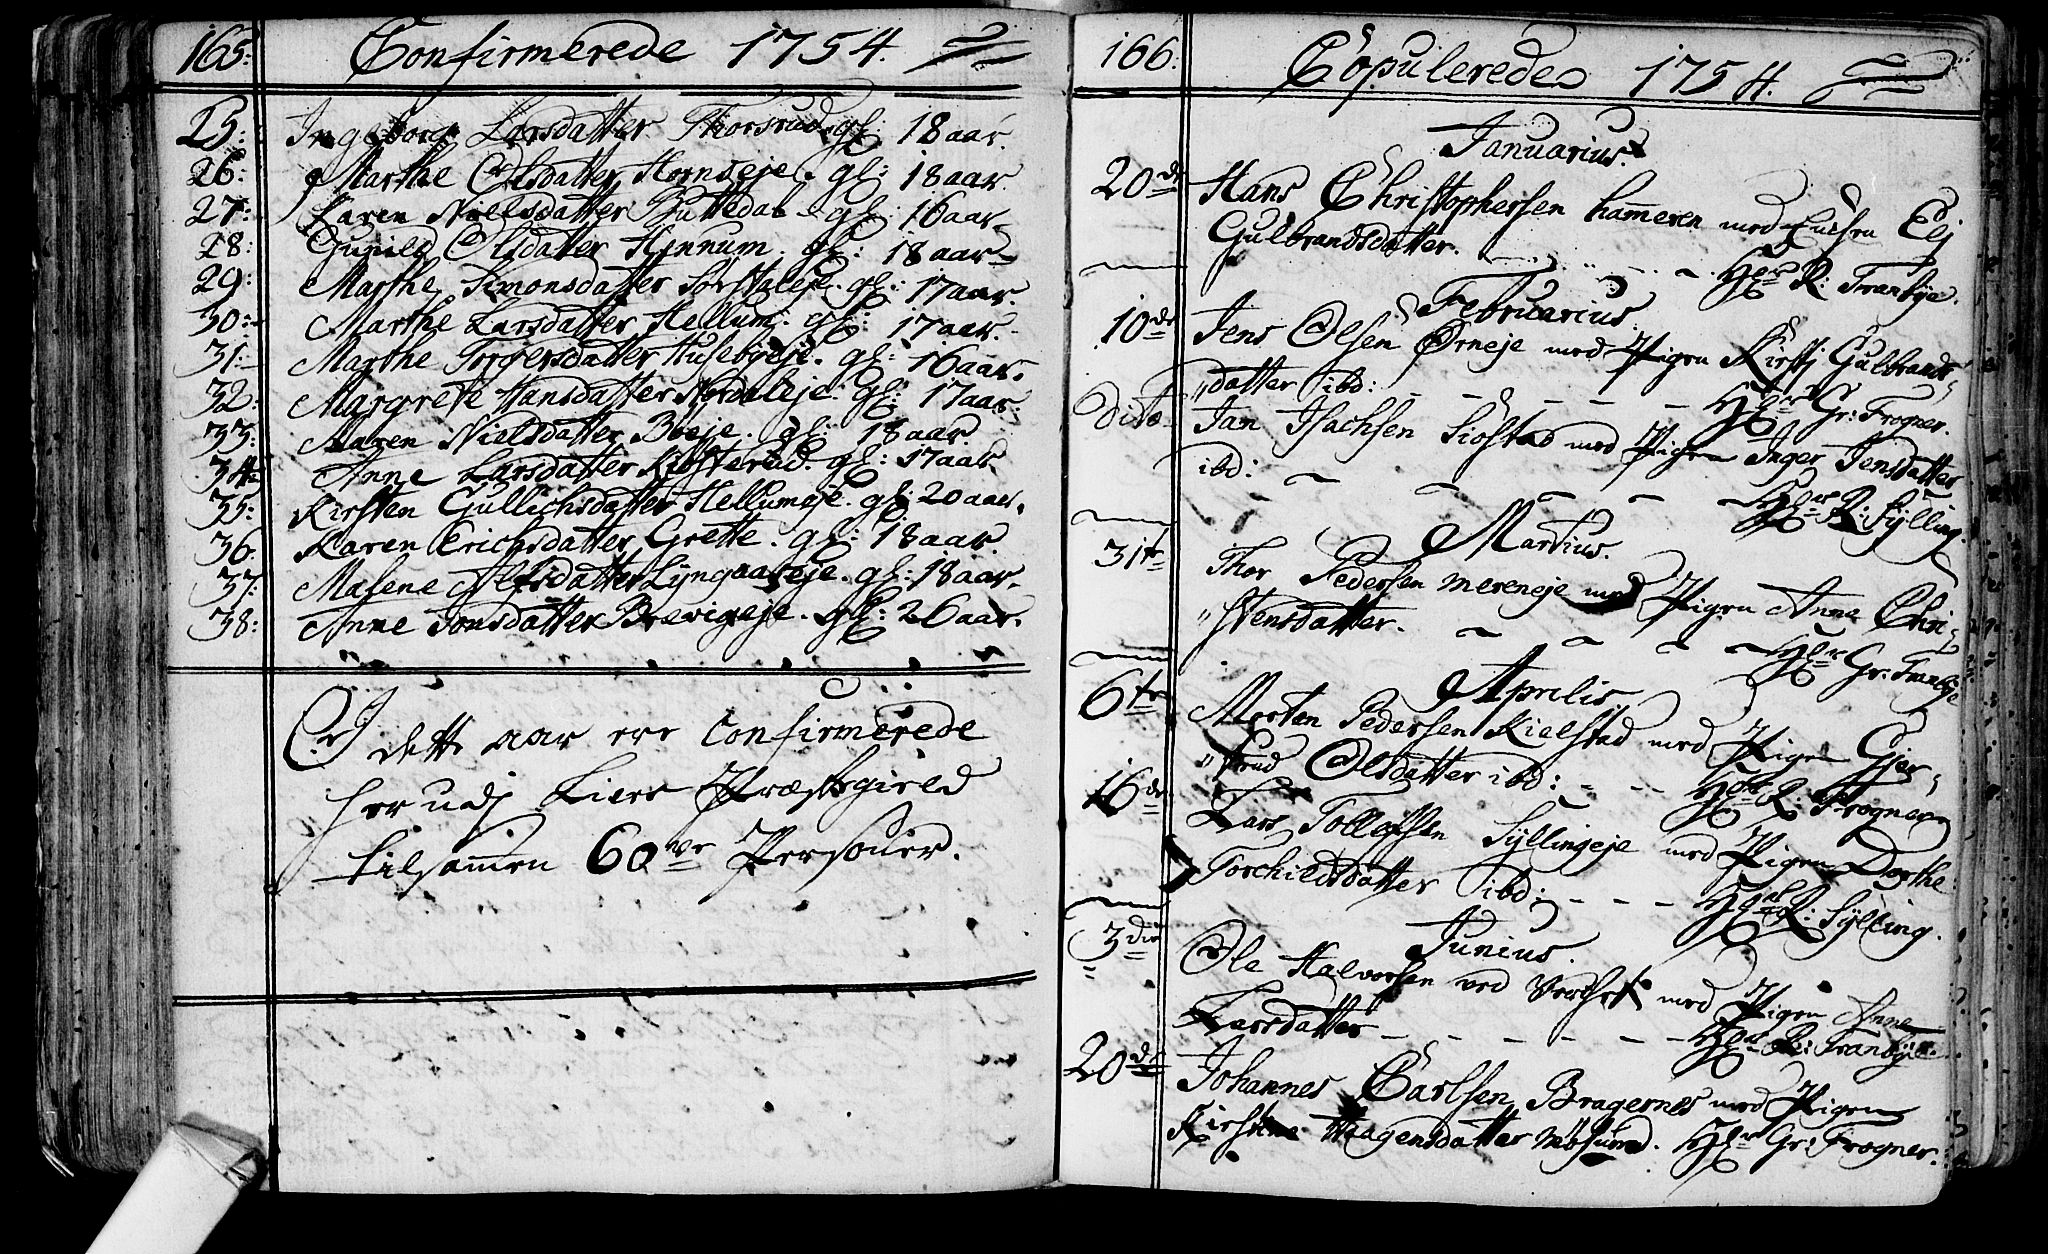 165: Confirmerede 1754.
25: Ingeborg Larsdatter Thorsrud gl: 18 aar.
26: Marthe Olsdatter Hornseje. gl: 18 aar.
27: Karen Nielsdatter Buttedal gl: 16 aar.
28: Gunild Olsdatter Hennum. gl: 18 aar
29: Marthe Simonsdatter Sørstaleje. gl: 17 aar.
30: Marthe Larsdatter Hellum. gl: 17 aar.
31: Marthe Torgersdatter Husebyeje. gl: 16 aar.
32: Margrete Hansdatter Nordaleje. gl: 17 aar.
33: Maren Nielsdatter Bøeje. gl: 18 aar.
34: Anne Larsdatter Kiosterud. gl: 17 aar.
35: Kirsten Gullichsdatter Hellumeje. gl: 20 aar.
36. Karen Erichsdatter Grette. gl: 18 aar.
37: Malene Alfsdatter Lyngaaseje. gl: 18 aar.
38: Anne Jonsdatter Brevigeje. gl: 26 aar.
I dette aar ere Confirmerede
her udj Liers Præstegield
tilsamen 60 ve Personer.
166. Copulerede 1754.
Januarius.
20de Hans Christophersen hameren med Enchen Elj
Gulbrandsdatter. Hgl R: Tranbye.
Februarius.
10de Jens Olsen Ørneje med Pigen Kirstj Gulbrands
datter ibd: Hgl Gr: Frogner.
dito Jan Isachsen Siostad med Pigen Inger Jensdatter
ibd: Hgl R: Sylling.
Martius.
31te Thor Pedersen mereneje med Pigen Anne Chri
stensdatter. Hgl Gr: Tranbye
Aprilis
6te Morten Pedersen Kielstad med Pigen Gjer
trud Olsdatter ibd: Hgl R: Frogner
16de Lars Tollefsen Syllingeje med Pigen Dorthe
Torchildsdatter ibd: Hgl R: Sylling.
Junius.
3die Ole Halvorsen ved med Pigen Anne
Larsdatter Hgl R: Tranbye
20de Johannes Carlsen Bragernes med Pigen
Kirstine Mogensdatter Hgl Gr: Frogner.